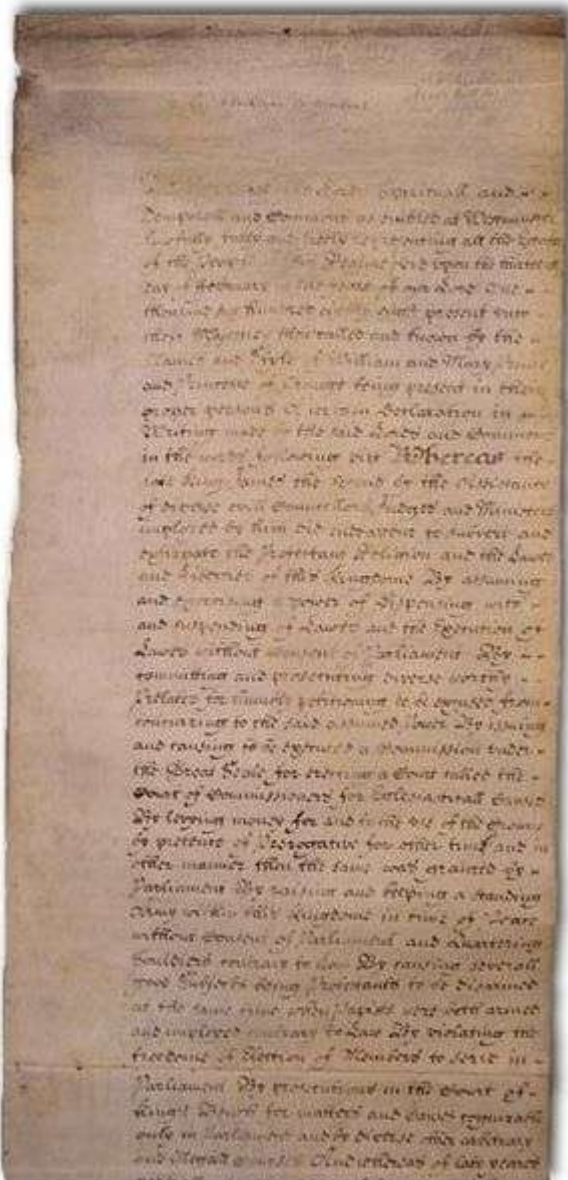 Lords Spirituall and
Temporall and Commons assembled at Westminster
lawfully fully and freely representing all the Estates
of the People of this Realme did upon the thirteenth
day of February in the yeare of our Lord One
thousand six hundred eighty eight present unto
their Majesties then called and known by the
Names and Stile of William and Mary Prince
and Princesse of Orange being present in their
proper persons a certain Declaration in
Writing made by the said Lords and Commons
in the words following viz Whereas the
late King James the Second by the Assistance
of diverse evill Councellors Judges and Ministers
imployed by him did endeavour to subvert and
extirpate the Protestant Religion and the Lawes
and Liberties of this Kingdome By assuming
and exercising a power of dispensing with
and suspending of Lawes and the Execution of
Lawes without Consent of Parliament By
committing and prosecuting diverse worthy
Prelates for humbly petitioning to be excused from
concurring to the said assumed Power By issuing
and causing to be executed a Commission under
the Great Seale for erecting a Court called the
Court of Commissioners for Ecclesiasticall Causes
By levying money for and to the use of the Crowne
by pretence of Prerogative for other time and in
other manner then the same was granted by
Parliament By raising and keeping a standing
Army within this Kingdome in time of Peace
without Consent of Parliament and Quartering
Souldiers contrary to Law By causing severall
good Subjects being Protestants to be disarmed
at the same time when Papists were both armed
and imployed contrary to Law By violating the
freedome of Election of Members to serve in
Parliament By prosecutions in the Court of
Kings Bench for matters and causes cognizable
only in Parliament and by diverse other arbitrary
and illegall courses And whereas of late yeares